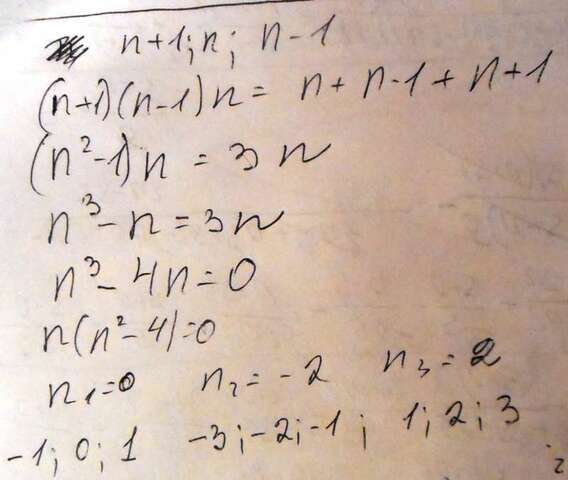 n+1; n; n-1
(n+1)(n-1)n = n + n-1 + n+1
(n²-1)n = 3n
n³-n = 3n
n³-4n=0
n(n²-4)=0
n₁=0 n₂=-2 n₃=2
-1; 0; 1 -3; -2; -1; 1; 2; 3